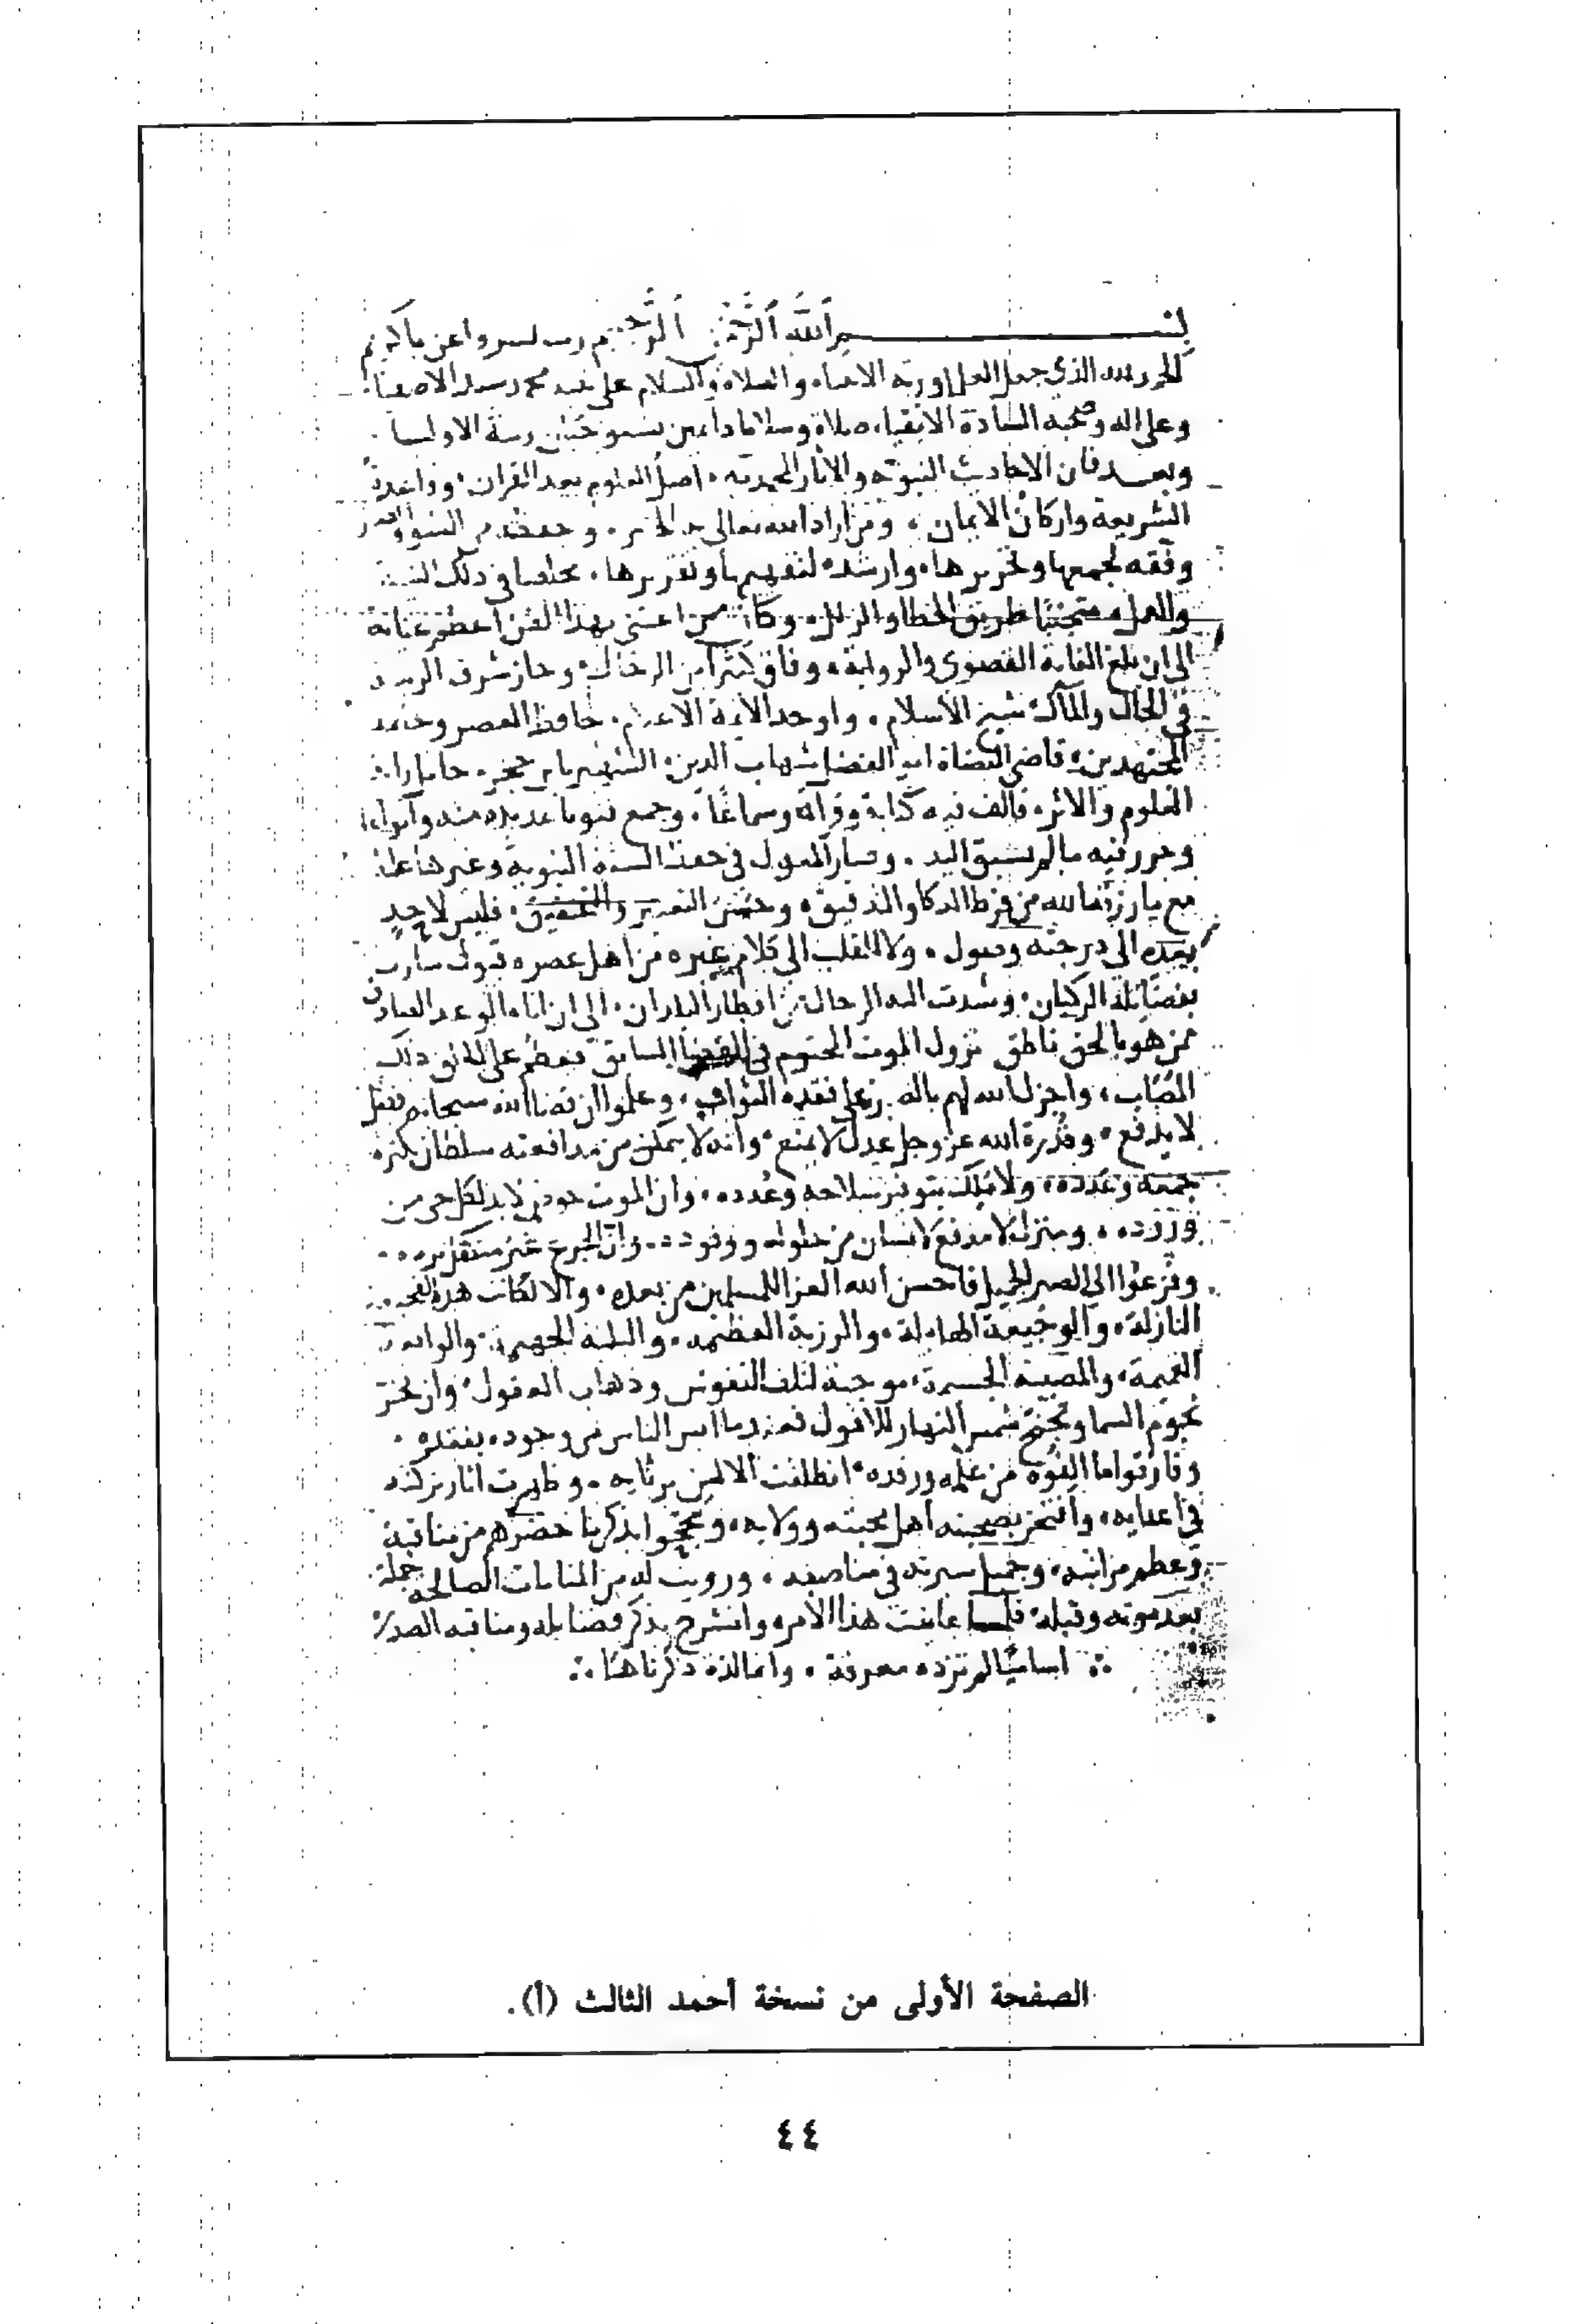 بسم الله الرحمن الرحيم رب يسر واعن يا كريم
الحمد لله الذي جعل العلما ورثة الانبياء والصلاة والسلام على محمد سيد الاصفيا
وعلى اله وصحبه السادة الاتقياء صلاة وسلاما دايمين الاوليا
وبعد فان الاحاديث النبوية والاثار المحمدية اصل العلوم بعد القران وقاعدة
الشريعة واركان الايمان ومن اراد الله تعالى
وفقه لجمعها وتحريرها وارشده لتفهيمها وتقريرها مخلصا في ذلك النية
والعمل متجنبا طريق الخطا والزلل وكان ممن اعتنى بهذا الفن اعظم عناية
الى ان بلغ الغاية القصوى والرواية وفاق كثيرا من الرجال وحاز شرف
في الحال والمآل شيخ الاسلام واوحد الايمة الاعلام حافظ العصر
المجتهدين قاضي القضاة ابو الفضل شهاب الدين الشهير بابن حجر حامل راية
العلوم والاثر فالف فيه كتابة وقراة وسماعا وجمع فنونا عديدة منه وابوابا
وحرر فيه ما لم يسبق اليه وصار المعول في حفظ السنة النبوية وغيرها عليه
مع ما رزقه الله من فرط الذكا والتدقيق وحسن التعبير والتحقيق فليس لاحد
بعده الى درجته وصول ولا للقلب الى كلام غيره من اهل عصره قبول سارت
بفضايله الركبان وشدت اليه الرحال من اقطار البلدان الى ان اتاه الوعد الصادق
ممن هو بالحق ناطق نزول الموت المحتوم في القضا السابق فعظم على ذلك
المصاب واجزل الله لهم على فقده الثواب وعلموا ان قضا الله سبحانه
لا يدفع وقدرة الله عز وجل عدل لا يمنع وانه لا يمكن من مدافعته سلطان بكثرة
جمعه وعدده ولا ملك بتوفر سلاحه وعدده وان الموت حوض لا بد لكل حي من
وروده ومنزل لا مدفع لانسان من حلوله ووفوده
وفزعوا الى الصبر الجميل فاحسن الله العزا للمسلمين من بعده والا لكانت هذه
النازلة والوجيعة الهايلة والرزية العظيمة والبلية الجسيمة
والمصيبة الجسيمة موجبة لتلف النفوس وذهاب العقول وان تخر
نجوم السما وتجنح شمس النهار للافول فعندما ايس الناس من وجوده بفقده
وفارقوا ما الفوه من علمه ورفده انطلقت الالسن برثايه وظهرت اثار
في اعدايه وافتخر بصحبته اهل محبته وولايه من مناقبه
وعظم مراتبه وجميل سيرته في مناصبه ورويت له من المنامات الصالحة جملة
بعد موته وقبله فلما عاينت هذا الامر وانشرح بذكر فضايله ومناقبه الصدر
اساميا لم تزده معرفة وانما لذة ذكرناها
الصفحة الأولى من نسخة أحمد الثالث (أ).
٤٤